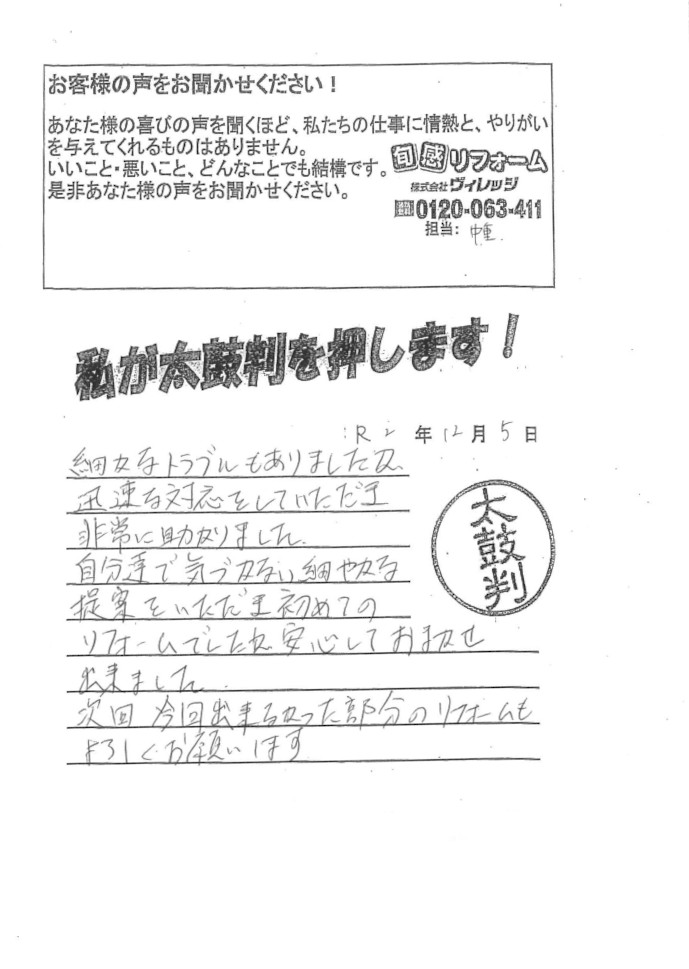 お客様の声をお聞かせください！
あなた様の喜びの声を聞くほど、私たちの仕事に情熱と、やりがい
を与えてくれるものはありません。
いいこと・悪いこと、どんなことでも結構です。
是非あなた様の声をお聞かせください。
旬感リフォーム
株式会社ヴィレッジ
0120-063-411
担当：中重
私が太鼓判を押します！
R2年12月5日
細かなトラブルもありましたが
迅速な対応をしていただき
非常に助かりました。
自分達で気づかない細やかな
提案をいただき初めての
リフォームでしたが安心しておまかせ
出来ました。
次回 今回出来なかった部分のリフォームも
よろしくお願いします
太鼓判